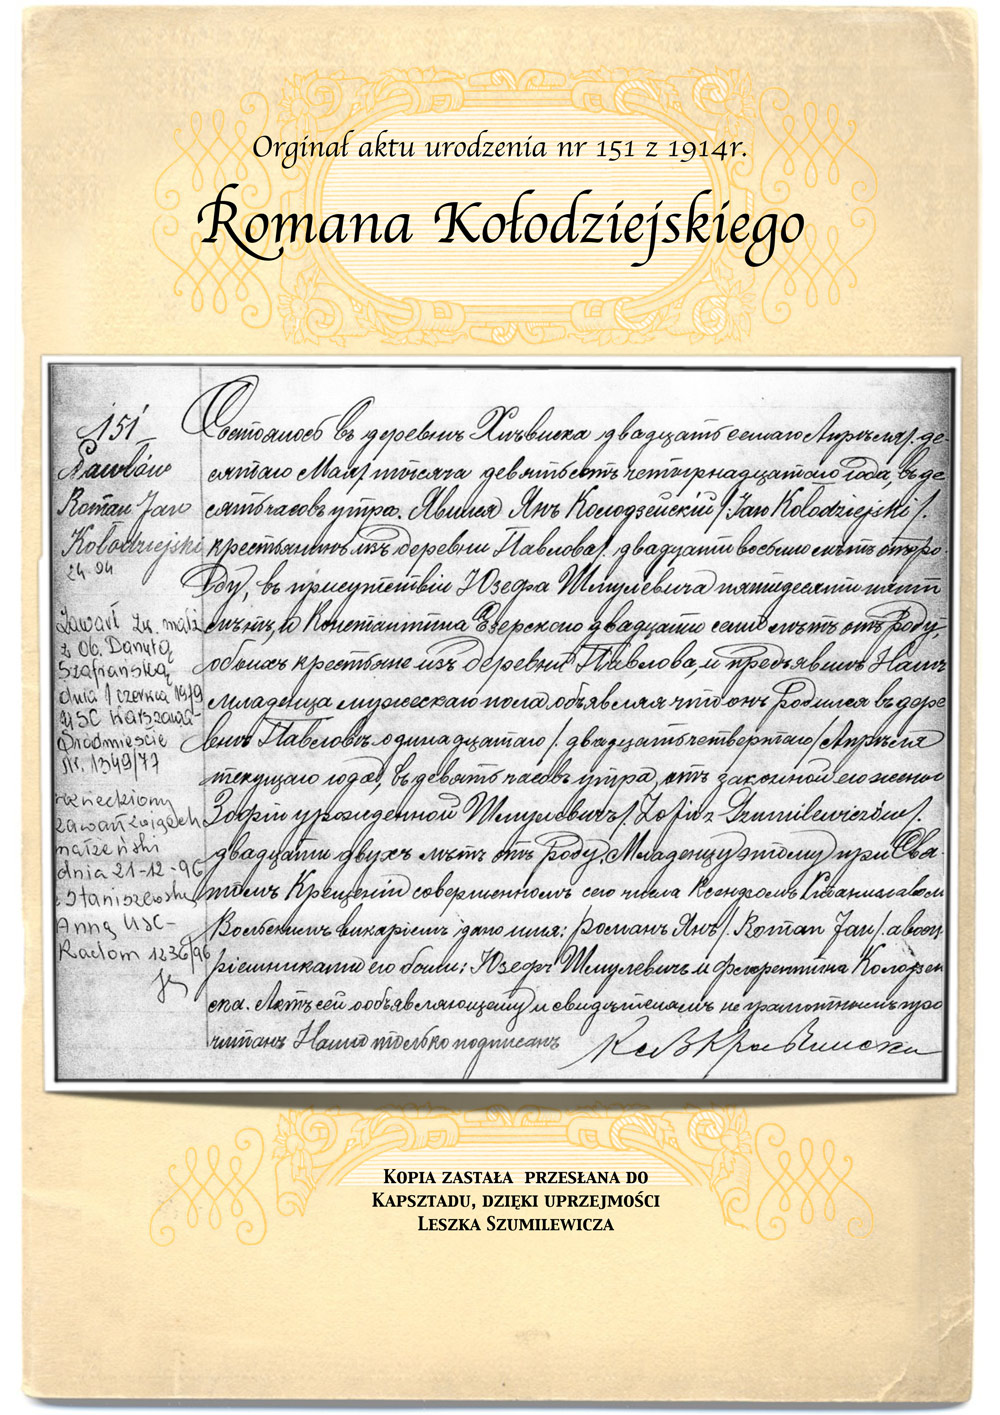 Orginał aktu urodzenia nr 151 z 1914r.
Romana Kołodziejskiego
151
Pawłów
Roman Jan
Kołodziejski
24.04
Zawarł zw. małż.
z Ob. Danutą
Szafrańską
dnia 1 czerwca 1979
USC Warszawa-
Śródmieście
Nr. 1349/77
zawarł związek
małżeński
dnia 21-12-96
Staniszewską
Anną USC-
Radom 1236/96
Состоялось въ деревнѣ двадцать седьмаго Апрѣля /: де-
сятаго Мая :/ тысяча девятьсотъ четырнадцатаго года, въ де-
сять часовъ утра. Явился Янъ Колодзейскій /: Jan Kołodziejski :/
крестьянинъ изъ деревни Павлова, двадцати восьми лѣтъ отъ ро-
ду, въ присутствіи Юзефа Шмулевича пятидесяти пяти
лѣтъ, и Константина Езерскаго двадцати семи лѣтъ отъ роду
обоихъ крестьяне изъ деревни Павлова, и предъявилъ Намъ
младенца мужескаго пола, объявляя что онъ родился въ дере-
внѣ Павловѣ одинадцатаго /: двадцать четвертаго :/ Апрѣля
текущаго года, въ девять часовъ утра, отъ законной его жены
Зофіи урожденной Шмулевичъ /: Zofii z Szmilewiczów :/
двадцати двухъ лѣтъ отъ роду. Младенцу этому при Свя-
томъ Крещеніи совершенномъ сего числа Ксендзомъ Станиславомъ
викаріемъ дано имя: Романъ Янъ /: Roman Jan :/ а воспр-
ріемниками его были: Юзефъ Шмулевичъ и Флорентина Колодзей-
ска. Актъ сей объявляющему и свидѣтелямъ неграмотнымъ про-
читанъ Нами только подписанъ
Кс В
Kopia zastała przesłana do
Kapsztadu, dzięki uprzejmości
Leszka Szumilewicza